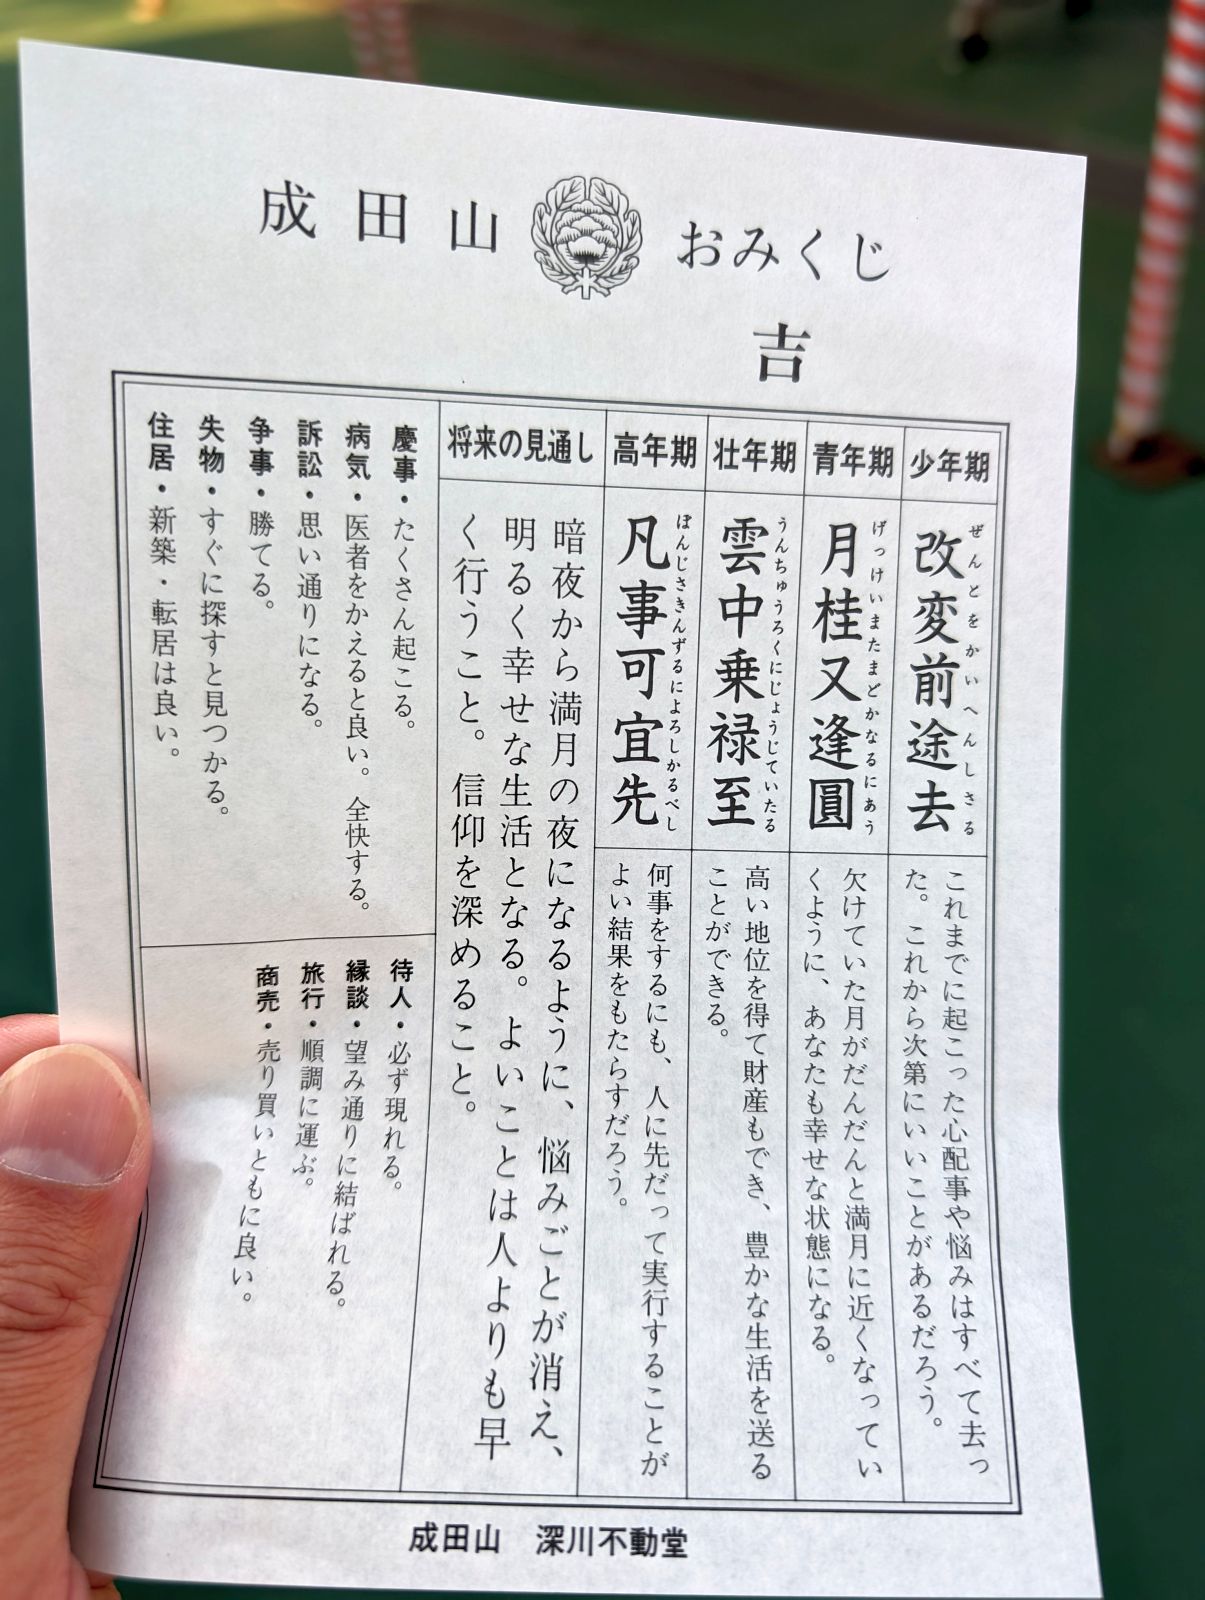 成田山 おみくじ
吉
少年期
改変前途去
ぜんとをかいへんしさる
これまでに起こった心配事や悩みはすべて去っ
た。これから次第にいいことがあるだろう。
青年期
月桂又逢圓
げっけいまたまどかなるにあう
欠けていた月がだんだんと満月に近くなってい
くように、あなたも幸せな状態になる。
壮年期
雲中乗禄至
うんちゅうろくにじょうじていたる
高い地位を得て財産もでき、豊かな生活を送る
ことができる。
高年期
凡事可宜先
ぼんじさきんずるによろしかるべし
何事をするにも、人に先だって実行することが
よい結果をもたらすだろう。
将来の見通し
暗夜から満月の夜になるように、悩みごとが消え、
明るく幸せな生活となる。よいことは人よりも早
く行うこと。信仰を深めること。
慶事・たくさん起こる。
病気・医者をかえると良い。全快する。
訴訟・思い通りになる。
争事・勝てる。
失物・すぐに探すと見つかる。
住居・新築・転居は良い。
待人・必ず現れる。
縁談・望み通りに結ばれる。
旅行・順調に運ぶ。
商売・売り買いともに良い。
成田山 深川不動堂